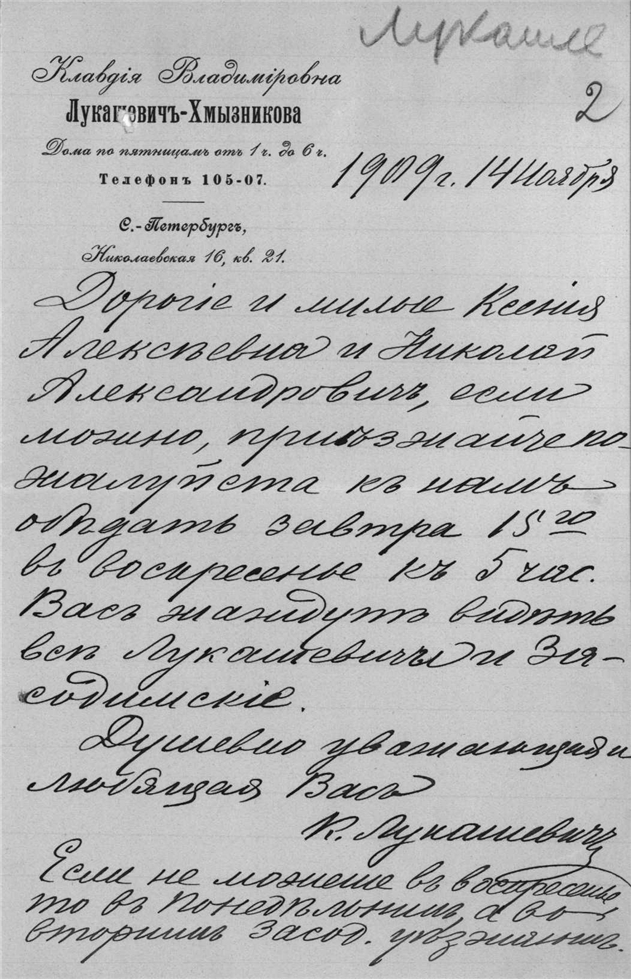 Лукашев
2
Клавдія Владиміровна
Лукашевичъ-Хмызникова
Дома по пятницамъ отъ 1 ч. до 6 ч.
Телефонъ 105-07.
1909 г. 14 Ноября
С.-Петербургъ,
Николаевская 16, кв. 21.
Дорогіе и милые Ксенія
Алексѣевна и Николай
Александровичъ, если
можно, пріѣзжайте по-
жалуйста къ намъ
обѣдать завтра 15го
въ воскресенье къ 5 час.
Васъ жаждутъ видѣть
всѣ Лукашевичы и За-
содимскіе.
Душевно уважающая и
любящая Васъ
К. Лукашевичъ
Если не можете въ воскресенье,
то въ понедѣльникъ, а во
вторникъ Засод. уѣзжаютъ.